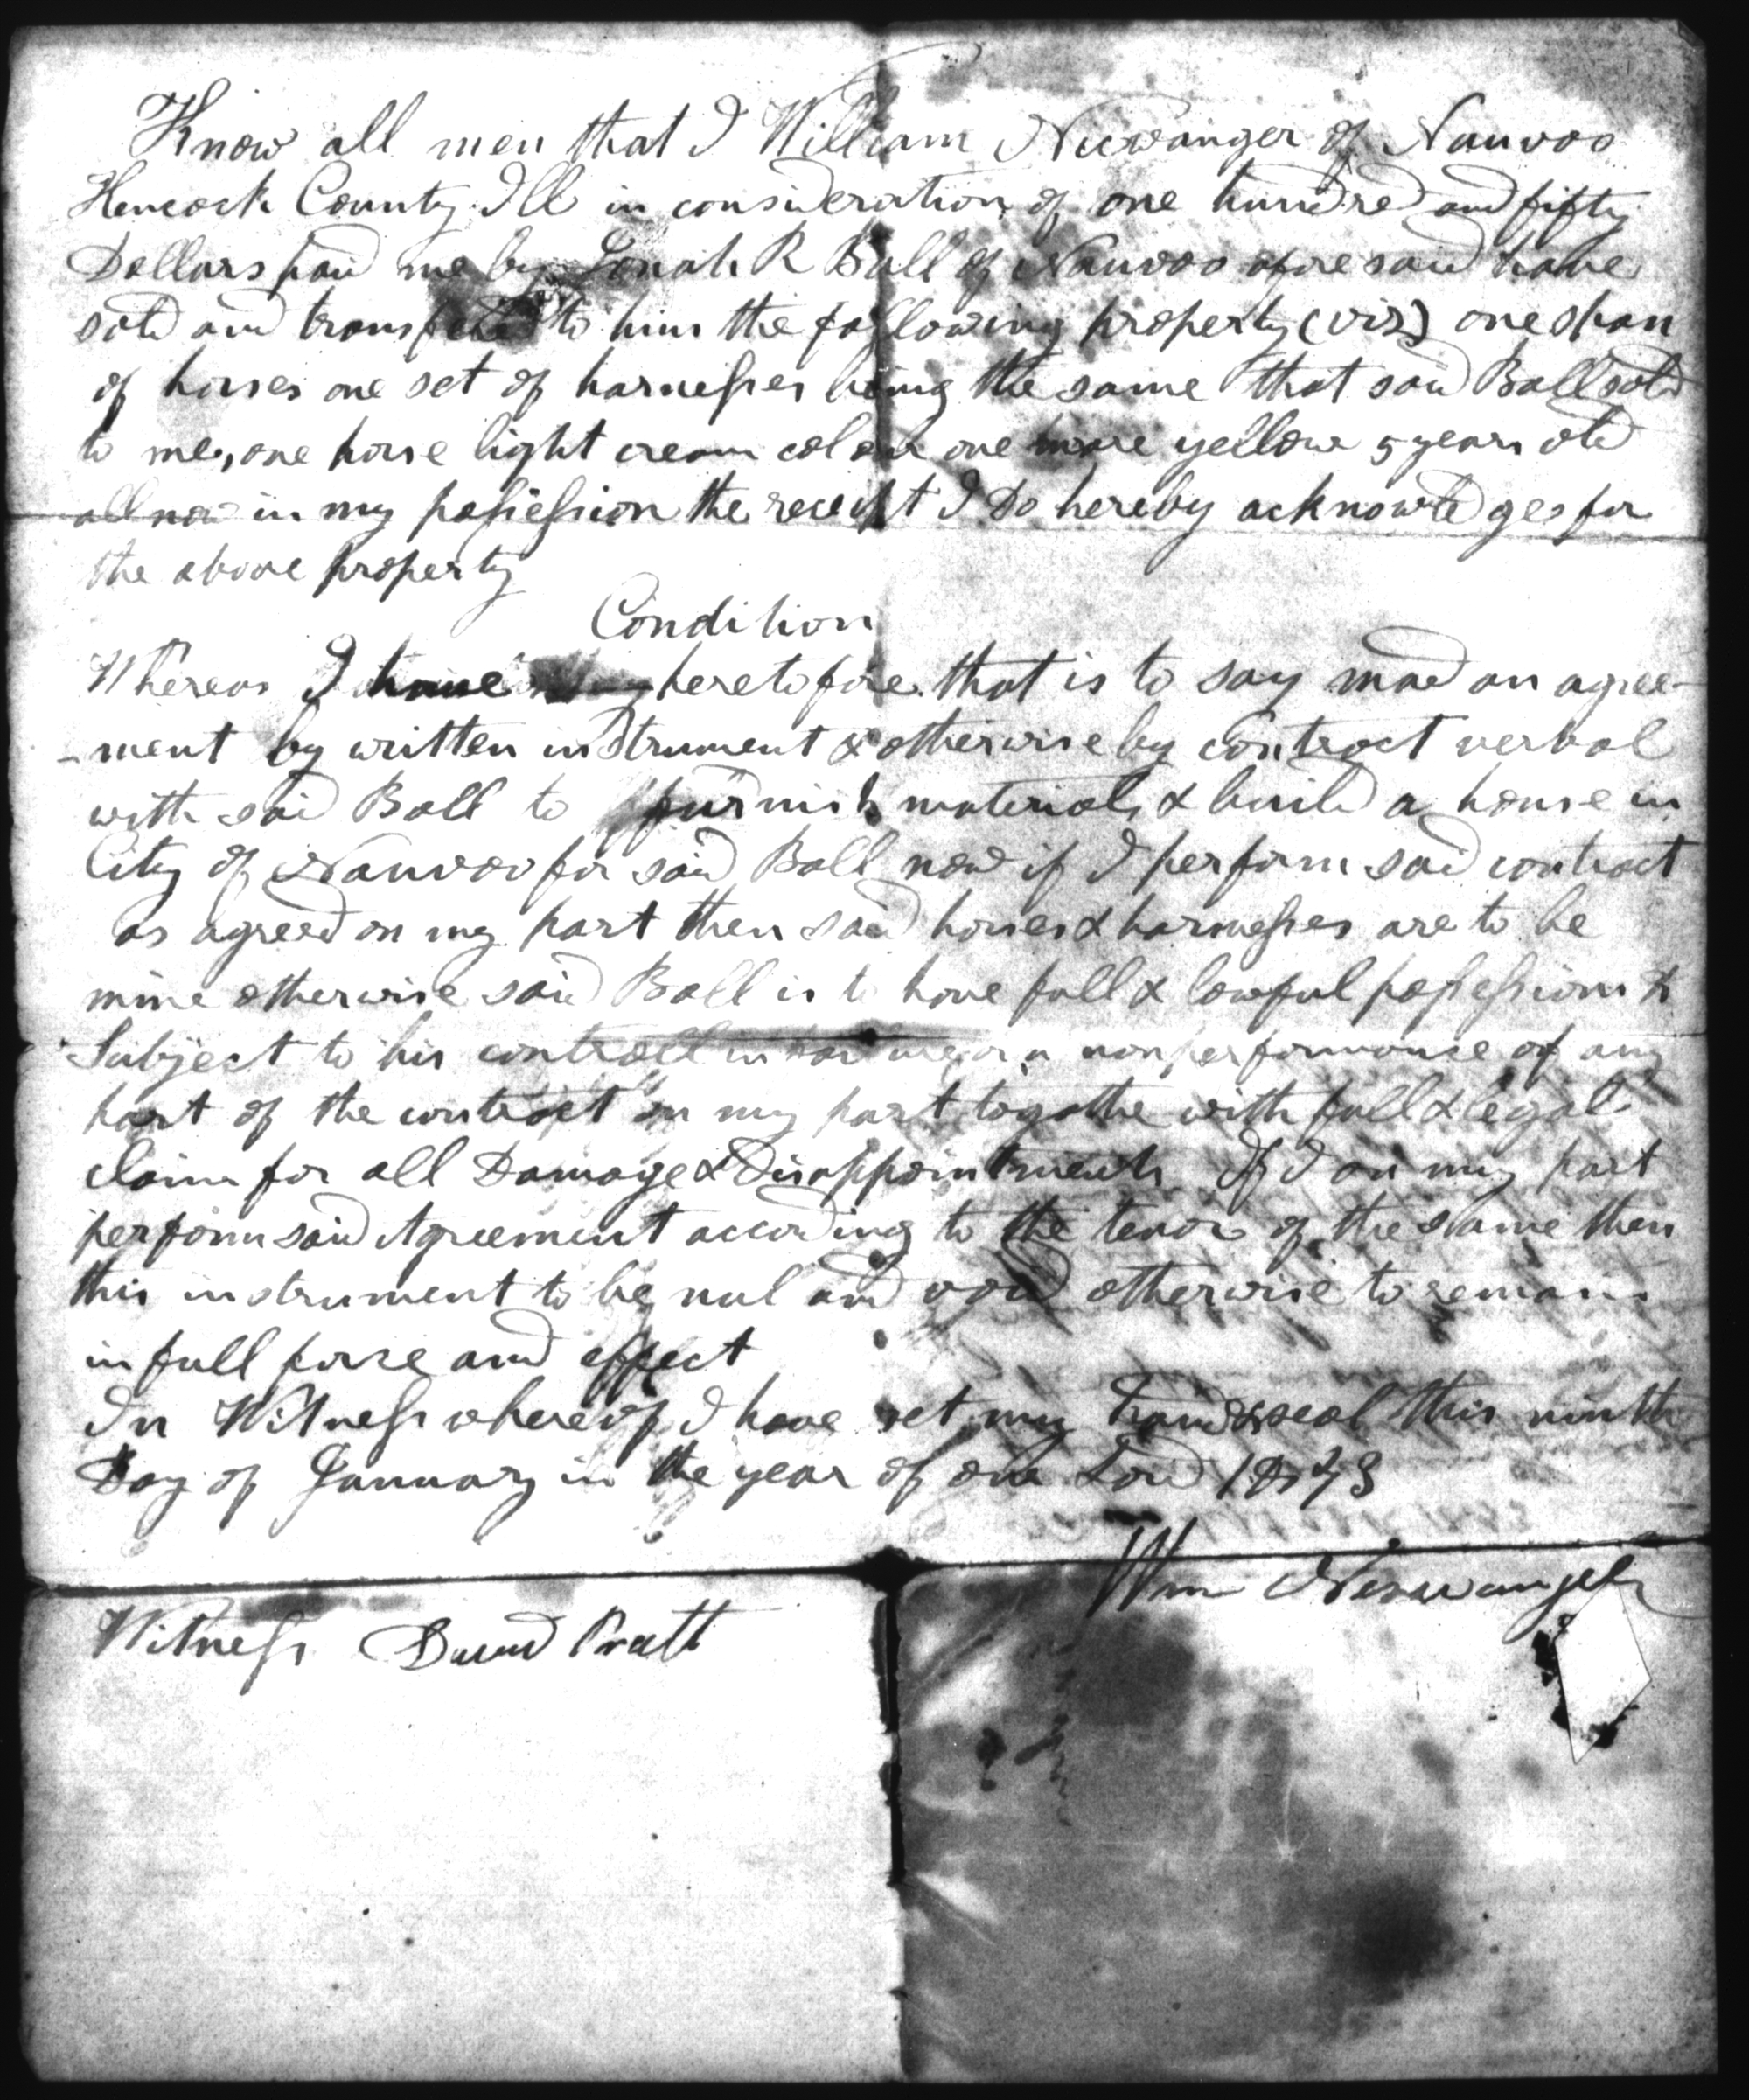 Know all men that I William Niswanger of Nauvoo
Hancock County Ill in consideration of one hundred and fifty
Dollars paid me by Jonah R Ball of Nauvoo afore said have
sold and transfered to him the following property (viz) one span
of horses one set of harnesses being the same that said Ball sold
to me, one horse light cream colour one mare yellow 5 years old
all now in my possession the receipt I do hereby acknowledges for
the above property
Condition
Whereas I have heretofore that is to say mad an agree-
-ment by written instrument & otherwise by contract verbal
with said Ball to furnish materials & build a house in
City of Nauvoo for said Ball now if I perform said contract
as agreed on my part then said horses & harnesses are to be
mine otherwise said Ball is to have full & lawful possession &
Subject to his controll in a nonperformance of any
part of the contract on my part togathe with full & legal
claim for all Damage & Disappointments If I on my part
perform said Agreement according to the tenor of the same then
this instrument to be nul and void otherwise to remain
in full force and effect
In Witness whereof I have set my hand & seal this ninth
Day of January in the year of our Lord 1843
Wm Niswanger
Witness David Pratt